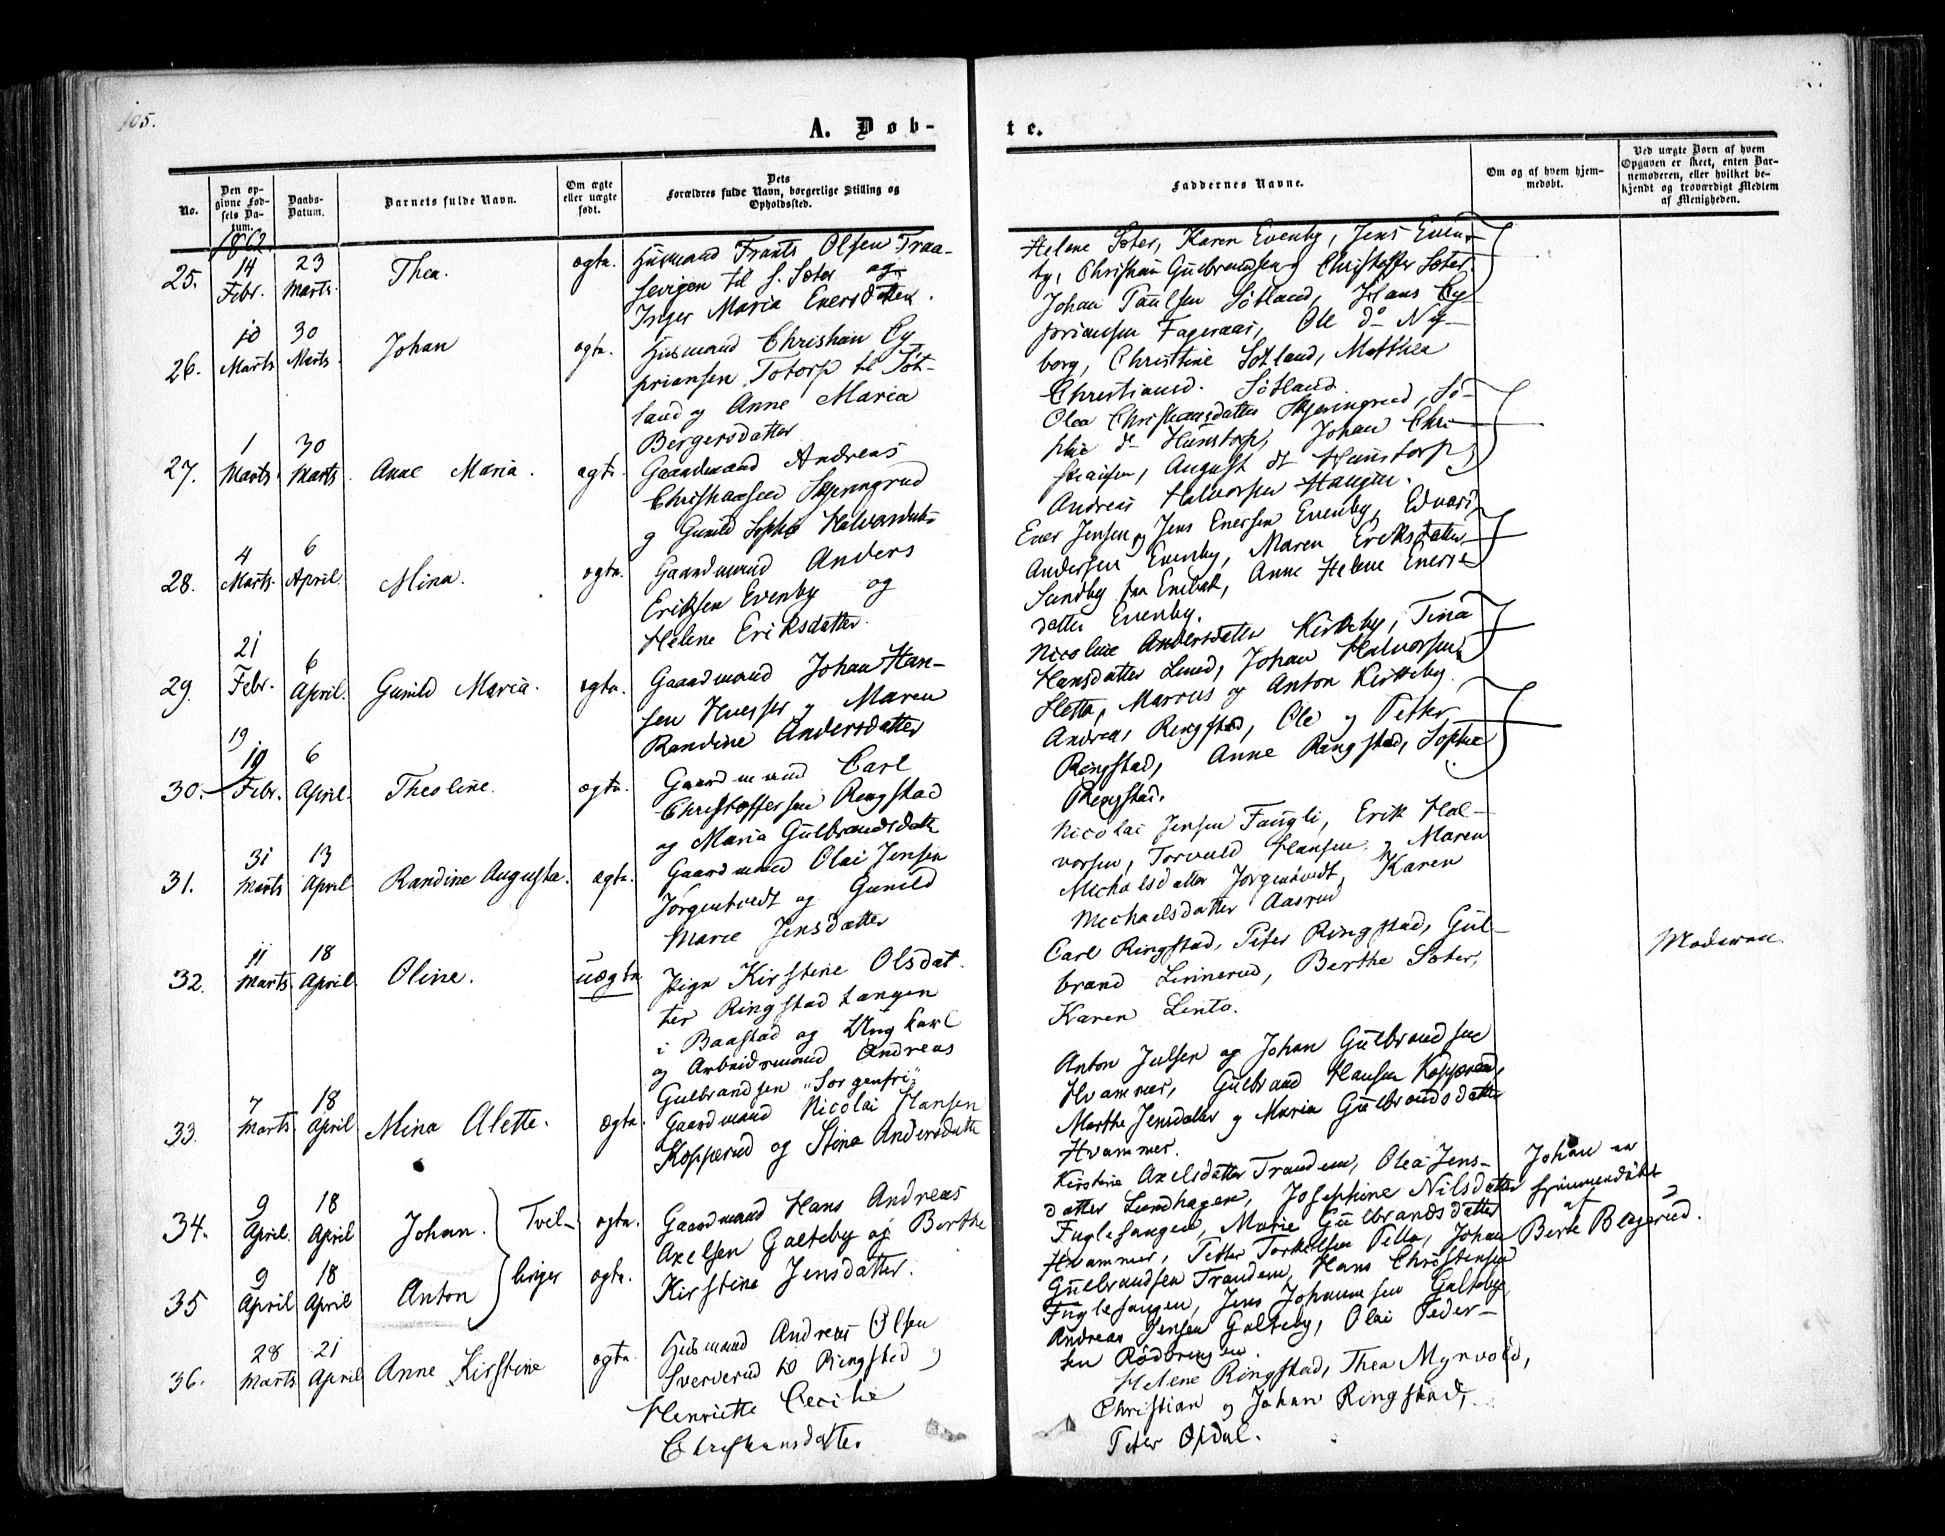 105.
A. Døb-
te.
No.
Den op-
givne Fød-
sels Da-
tum.
Daabs-
Datum.
Barnets fulde Navn.
Om ægte
eller uægte
født.
Dets
Forældres fulde Navn, borgerlige Stilling og
Opholdssted.
Faddernes Navne.
Om og af hvem hjem-
medøbt.
Ved uægte Børn af hvem
Opgaven er skeet, enten Bar-
nemoderen, eller hvilket be-
kjendt og troværdigt Medlem
af Menigheden.
1862.
25.
14
Febr.
23
Marts.
Thea.
ægte.
Husmand Frants Olsen Traa-
sevigen til S. Sæter og
Inger Maria Enersdatter.
Helene Sæter, Karen Evenby, Jens Even-
by, Christian Gulbrandsen, Christoffer Sæter.
26.
10
Marts
30
Marts.
Johan
ægte.
Husmand Christian Cy-
priansen Totorp til Søt-
land og Anne Maria
Bergersdatter
Johan Paulsen Søtland, Hans Cy-
priansen Fageraas, Ole do Ny-
borg, Christine Søtland, Mathea
Christiansd. Søtland.
27.
1
Marts
30
Marts.
Anne Maria.
ægte.
Gaardmand Andreas
Christiansen Skjenngrud
og Gunild Sophie Halvorsdatter
Olea Christiansdatter Skjenngrud, So-
phie do Hunstorp, Johan Chri-
stiansen, August do Hunstorp,
Andreas Halvorsen Haugen.
28.
4
Marts.
6
April.
Mina.
ægte.
Gaardmand Anders
Eriksen Evenby og
Helene Eriksdatter.
Ener Jensen, Jens Enersen Evenby, Edvard
Andersen Evenby, Maren Eriksdatter
Sundby fra Enebak, Anne Helene Eners-
datter Evenby.
29.
21
Febr.
6
April.
Gunild Maria.
ægte.
Gaardmand Johan Han-
sen og Maren
Randine Andersdatter
Nicoline Andersdatter Kirkeby, Tina
Hansdatter Lund, Johan Halvorsen
Sletta, Marcus og Anton Kirkeby.
30.
19
19
Febr.
6
April.
Theoline.
ægte.
Gaardmand Carl
Christoffersen Ringstad
og Maria Gulbrandsdatter
Andreas Ringstad, Ole og Petter
Ringstad, Anne Ringstad, Sophie
Ringstad.
31.
31
Marts
13
April
Randine Augusta.
ægte.
Gaardmand Olai Jensen
Jørgentvedt og Gunild
Marie Jensdatter
Nicolai Jensen Fangli, Erik Hal-
vorsen, Torvald Hansen, Maren
Michaelsdatter Jørgentvedt, Karen
Michaelsdatter Aasrud
32.
11
Marts
18
April
Oline.
uægte
Pige Kirstine Olsdat-
ter Ringstad Langen
i Baastad og Ungkarl
og Arbeidsmand Andreas
Gulbrandsen "Sorgenfri"
Carl Ringstad, Peter Ringstad, Gul-
brand Linnerud, Berthe Sæter,
Karen Linto.
Moderen.
33.
7
Marts
18
April
Mina Alette.
ægte.
Gaardmand Nicolai Hansen
Kopperud og Stina Andersdatte
Anton Julsen og Johan Gulbrandsen
Hvammer, Gulbrand Hansen Kopperud,
Marthe Jensdatter og Maria Gulbrandsdatter
Hvammer.
34.
9
April.
18
April
Johan.
Tvil-
linger
ægte.
Gaardmand Hans Andreas
Axelsen Galteby og Berthe
Kirstine Jensdatter.
Kirstine Axelsdatter Trandem, Olea Jens-
datter Lundhagen, Josephine Nilsdatter
Fuglesangen, Marie Gulbrandsdatter
Hvammer, Petter Torkelsen Pillo, Johan
Gulbrandsen Trandem, Hans Christensen
Fuglesangen, Jens Johannesen Galteby,
Andreas Jensen Galteby, Olai Peder-
sen Rødbrengen.
Johan er
hjemmedøbt
af
Berte Blegerud.
35
9
April
18
April
Anton
ægte.
36.
28
Marts
21
April
Anne Kirstine
ægte
Husmand Andreas Olsen
Sververud til Ringstad og
Henriette Cecilie
Christiansdatter
Helene Ringstad, Thea Myrvold,
Christian og Johan Ringstad,
Peter Opdal.